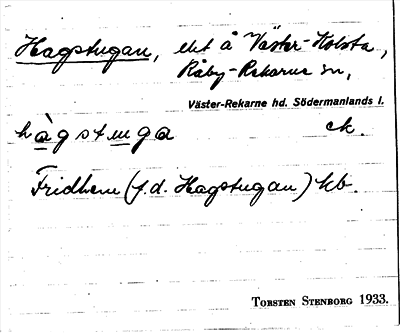 Hagstugan, elet å Väster-Kolsta,
Råby-Rekarne sn,
Väster-Rekarne hd. Södermanlands l.
hàgstuga ck.
Fridhem (f.d. Hagstugan) kb.
TORSTEN STENBORG 1933.